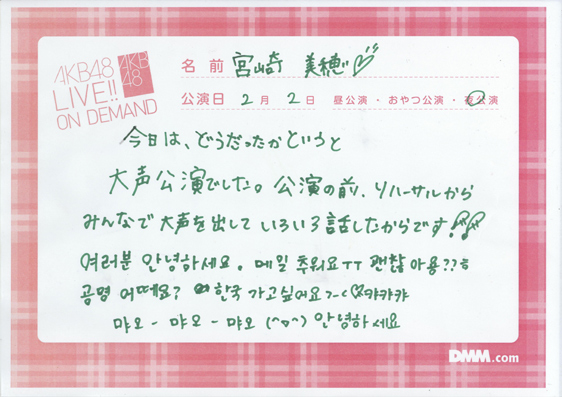 AKB48
LIVE!!
ON DEMAND
AKB
48
名前 宮崎 美穂
公演日 2月 2日 昼公演・おやつ公演・夜公演
今日は、どうだったかというと
大声公演でした。公演の前、リハーサルから
みんなで大声を出していろいろ話したからです!
여러분 안녕하세요. 메일 추워요ㅜㅜ 괜찮아용??ㅎ
공명 어떼요? 한국 가고싶어요~~ 캬캬캬
먀오-먀오-먀오(^o^) 안녕하세요
DMM.com